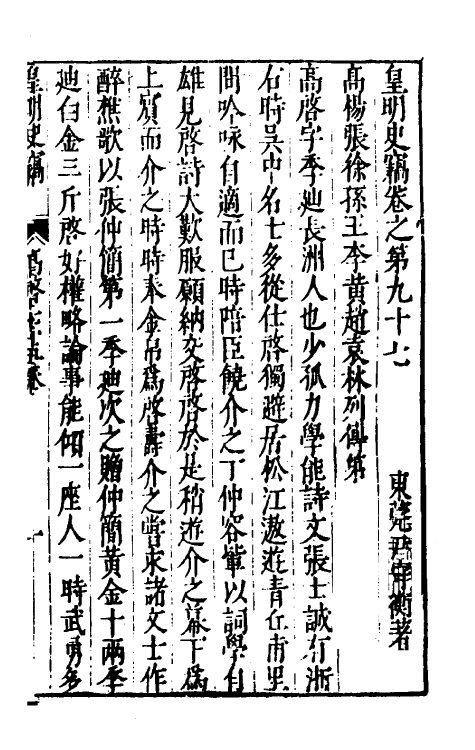 皇明史竊卷之第九十七
東莞尹守衡著
高楊張徐孫王李黃趙袁林列傳第
高啓字季迪長洲人也少孤力學能詩文張士誠有浙
右時吳中名士多從仕啓獨避居松江遨遊青丘甫里
間吟咏自適而已時陪臣饒介之丁仲容輩以詞學自
雄見啓詩大歎服願納交啓啓於是稍遊介之幕下爲
上賓而介之時時奉金帛爲啓壽介之嘗求諸文士作
醉樵歌以張仲簡第一季迪次之贈仲簡黃金十兩季
迪白金三斤啓好權略論事能傾一座人一時武勇多
皇明史竊
高啓
一